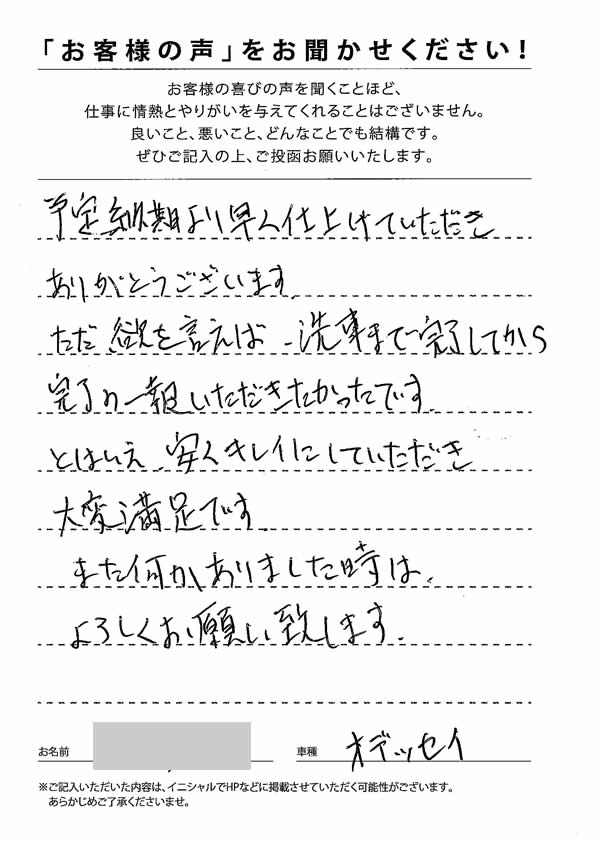 「お客様の声」をお聞かせください!
お客様の喜びの声を聞くことほど、
仕事に情熱とやりがいを与えてくれることはございません。
良いこと、悪いこと、どんなことでも結構です。
ぜひご記入の上、ご投函お願いいたします。
予定納期より早く仕上げていただき
ありがとうございます
ただ欲を言えば、洗車まで完了してから
完了の一報いただきたかったです。
とはいえ、安くキレイにしていただき
大変満足です
また何かありました時は、
よろしくお願い致します。
お名前
車種 オデッセイ
※ご記入いただいた内容は、イニシャルでHPなどに掲載させていただく可能性がございます。
あらかじめご了承くださいませ。